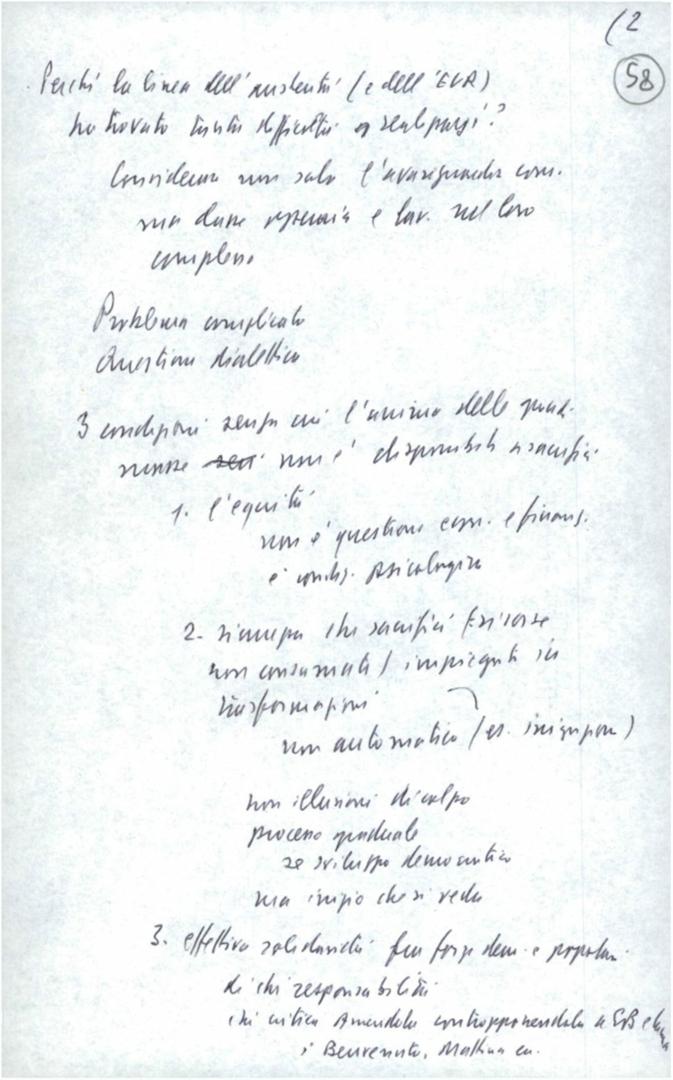 (2
58
Perché la linea dell'austerità (e dell'EUR)
ha trovato tante difficoltà a realizzarsi?
Considerare non solo l'avanguardia com.
ma classe operaia e lav. nel loro
complesso
Problema complicato
Questione dialettica
3 condizioni senza cui l'animo delle grandi
masse sen non è disponibile a sacrifici
1. l'equità
non è questione econ. e finanz.
è condiz. psicologica
2. sicurezza che sacrifici (risorse
non consumate) impiegati in
trasformazioni
non automatico (es. irrigazione)
non illusioni di colpo
processo graduale
se sviluppo democratico
ma inizio che si veda
3. effettiva solidarietà fra forze dem. e popolari
di chi responsabilità
chi critica Amendola contrapponendola a EB e
i Benvenuto, Mattina ecc.